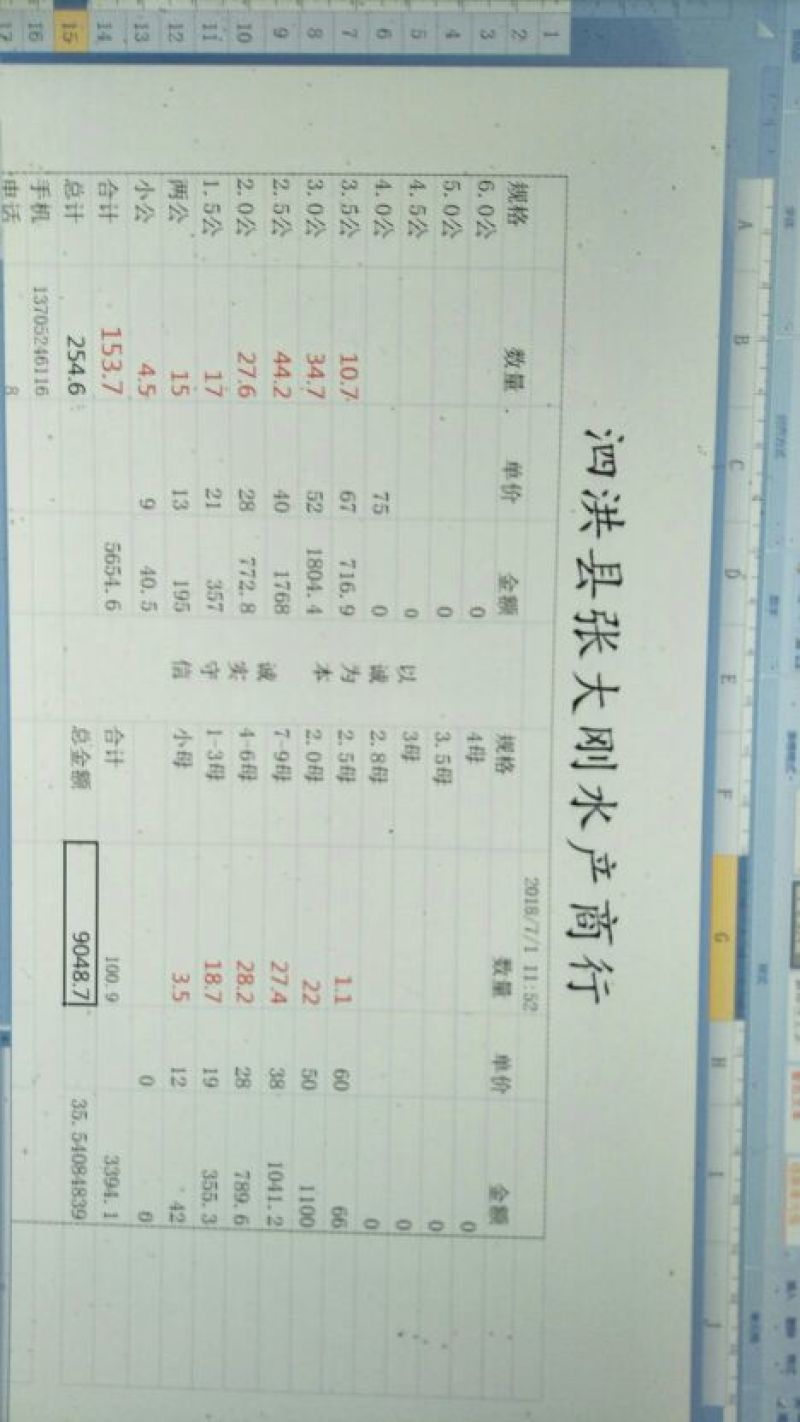 A B C D E F G H I J
1
泗洪县张大刚水产商行
2
2018/7/1 11:52
3 规格 数量 单价 金额 规格 数量 单价 金额
4 6.0公 0 4母 0
5 5.0公 0 3.5母 0
6 4.5公 0 以 3母 0
7 4.0公 75 0 诚 2.8母 0
8 3.5公 10.7 67 716.9 为 2.5母 1.1 60 66
9 3.0公 34.7 52 1804.4 本 2.0母 22 50 1100
10 2.5公 44.2 40 1768 7-9母 27.4 38 1041.2
11 2.0公 27.6 28 772.8 诚实 4-6母 28.2 28 789.6
12 1.5公 17 21 357 守 1-3母 18.7 19 355.3
13 两公 15 13 195 信 小母 3.5 12 42
14 小公 4.5 9 40.5 0 0
15 合计 153.7 5654.6 合计 100.9 3394.1
16 总计 254.6 总金额 9048.7 35.54084839
17 手机 13705246116
电话 8